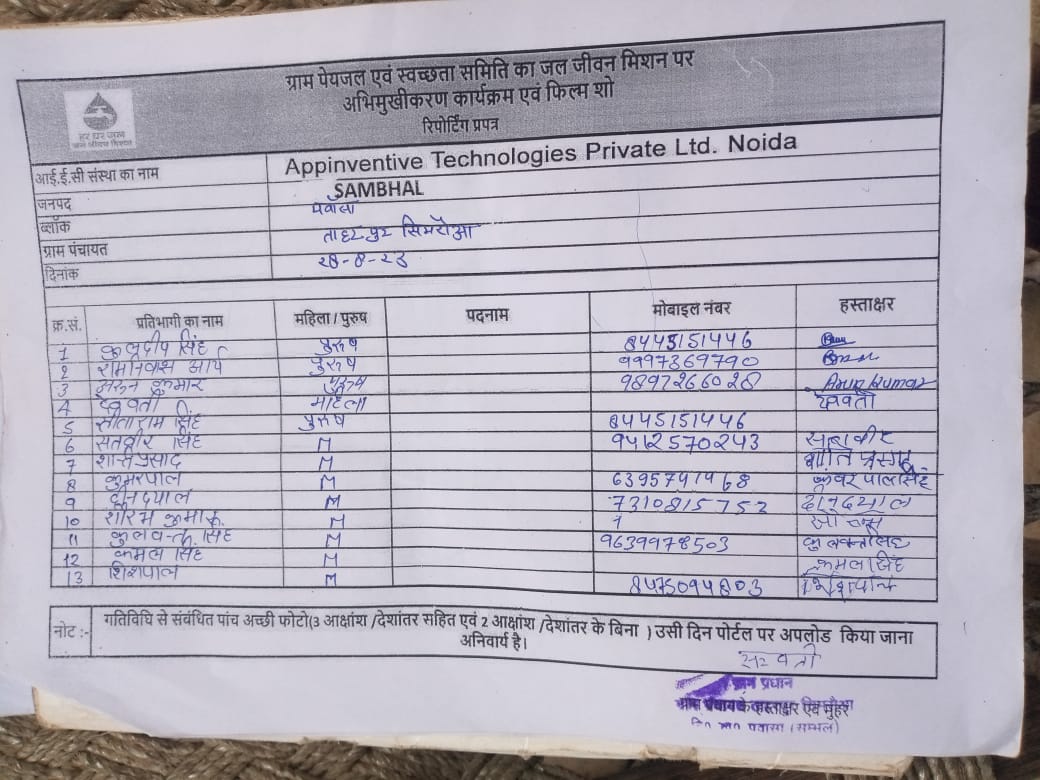 ग्राम पेयजल एवं स्वच्छता समिति का जल जीवन मिशन पर
अभिमुखीकरण कार्यक्रम एवं फिल्म शो
रिपोर्टिंग प्रपत्र
हर घर जल
जल जीवन मिशन
आई.ई.सी संस्था का नाम Appinventive Technologies Private Ltd. Noida
जनपद SAMBHAL
ब्लॉक पवांसा
ग्राम पंचायत ताहरपुर सिमरौआ
दिनांक २८-8-२३
क्र.सं. प्रतिभागी का नाम महिला / पुरुष पदनाम मोबाइल नंबर हस्ताक्षर
1 कुलदीप सिंह पुरुष 8445151446
2 रामनिवास आर्य पुरुष 9997369790
3 अरुन कुमार पुरुष 9897266028 Arun kumar
4 महिला
5 सीताराम सिंह पुरुष 8445151446
6 सतवीर सिंह M 9412570243 सतवीर
7 M
8 कुमरपाल M 6395741468 कुंवर पाल सिंह
9 दीनदयाल M 7310815752 दीनदयाल
10 M
11 M 9639978503
12 कमल सिंह M कमल सिंह
13 शिशपाल M 8475094803 शिशपाल
नोट :- गतिविधि से संबंधित पांच अच्छी फोटो(3 आक्षांश /देशांतर सहित एवं 2 आक्षांश /देशांतर के बिना ) उसी दिन पोर्टल पर अपलोड किया जाना
अनिवार्य है।
ग्राम प्रधान
के हस्ताक्षर एवं मुहर
पवासा (सम्भल)